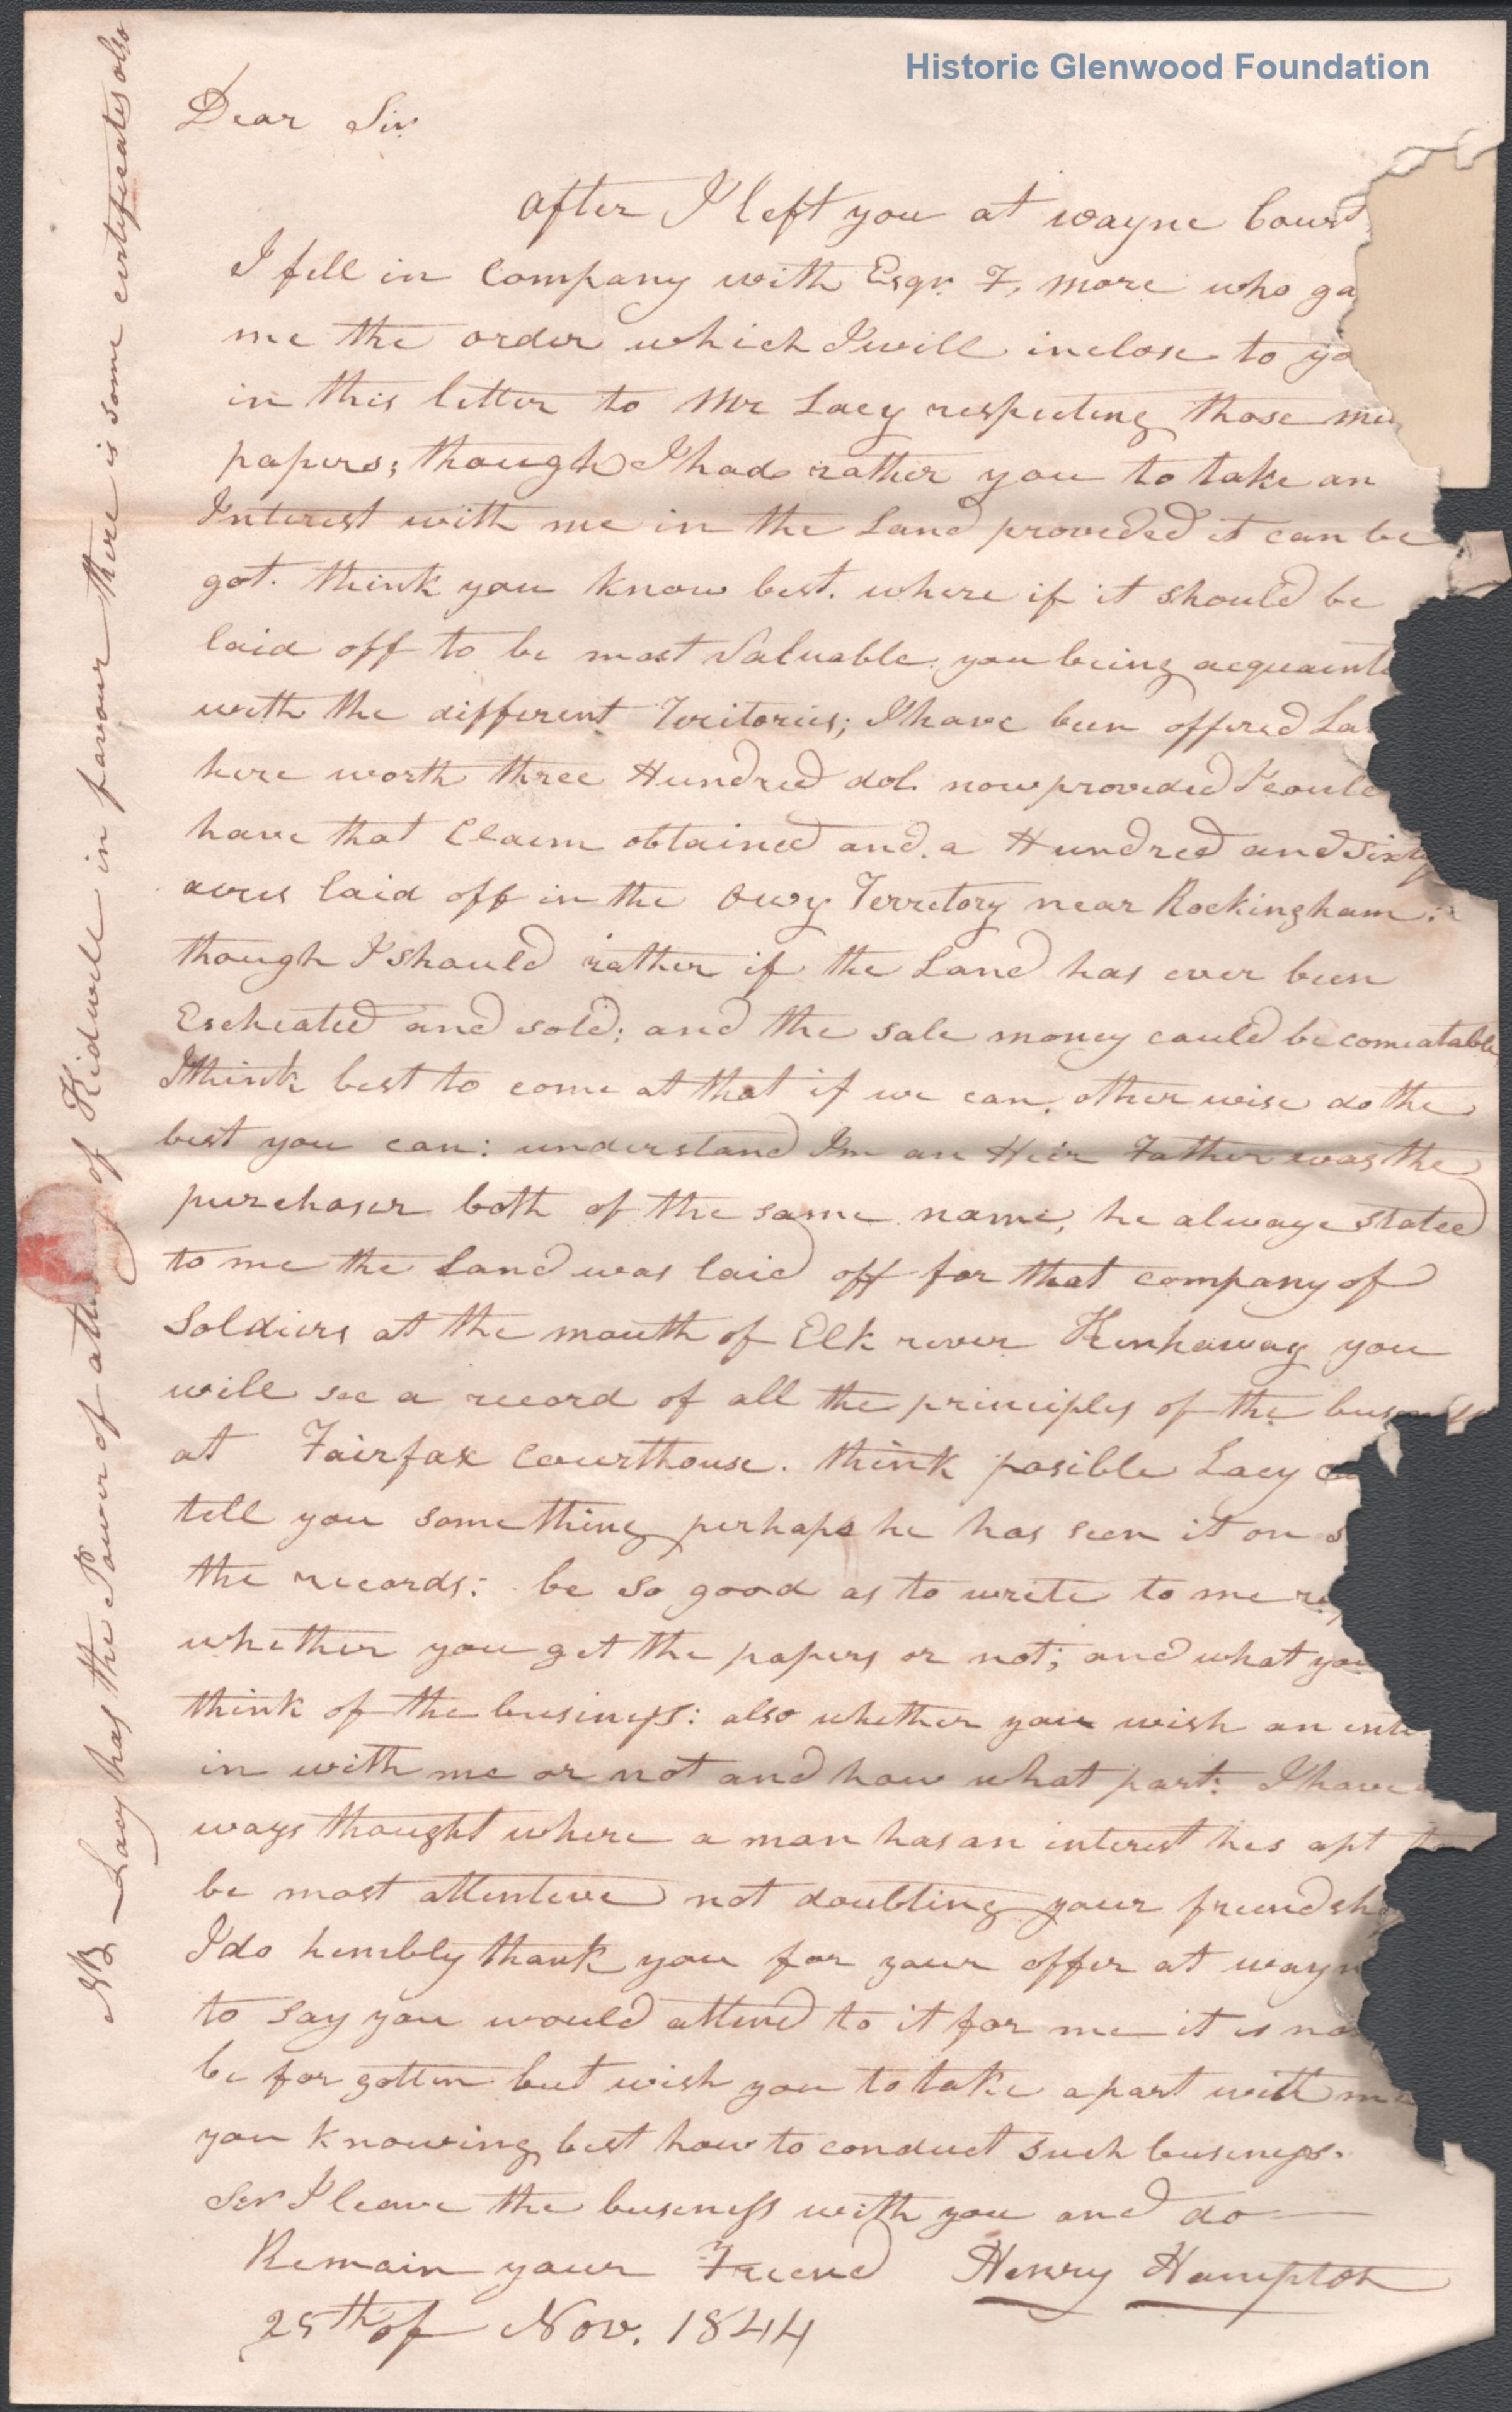 Historic Glenwood Foundation
Dear Sir
after I left you at wayne Court
I fell in Company with Esqr. F, more who ga
me the order which I will inclose to yo
in this letter to Mr Lacy respecting those
papers; though I had rather you to take an
Interest with me in the Land provided it can be
got. think you know best. where if it should be
laid off to be most Valuable. you being acquaint
with the different Teritories; I have been offered La
here worth three Hundred dol. now provided I coul
have that Claim obtained and. a Hundred and Sixty
acres laid off in the Territory near Rockingham.
though I should rather if the Land has ever been
Escheated and sold; and the sale money could be comeatable
I think best to come at that if we can, other wise do the
best you can: understand I'm an Heir Father was the
purchaser both of the same name, he always stated
to me the Land was laid off for that company of
Soldiers at the mouth of Elk river Kenhaway you
will see a record of all the principles of the business
at Fairfax Courthouse. think posible Lacy
tell you something perhaps he has seen it on
the records: be so good as to write to me
whether you get the papers or not; and what you
think of the business: also whether you wish an inte
in with me or not and how what part: I have
ways thought where a man has an interest hes apt to
be most attentive not doubting your friendsh
I do humbly thank you for your offer at wayn
to say you would attend to it for me it is no
be for gotten but wish you to take a part with me
you knowing best how to conduct such business.
Ser I leave the business with you and do
Remain your Friend Henry Hampton
25th of Nov. 1844
NB Lacy has the Power of atty of Kidwell in favour there is some certificates also